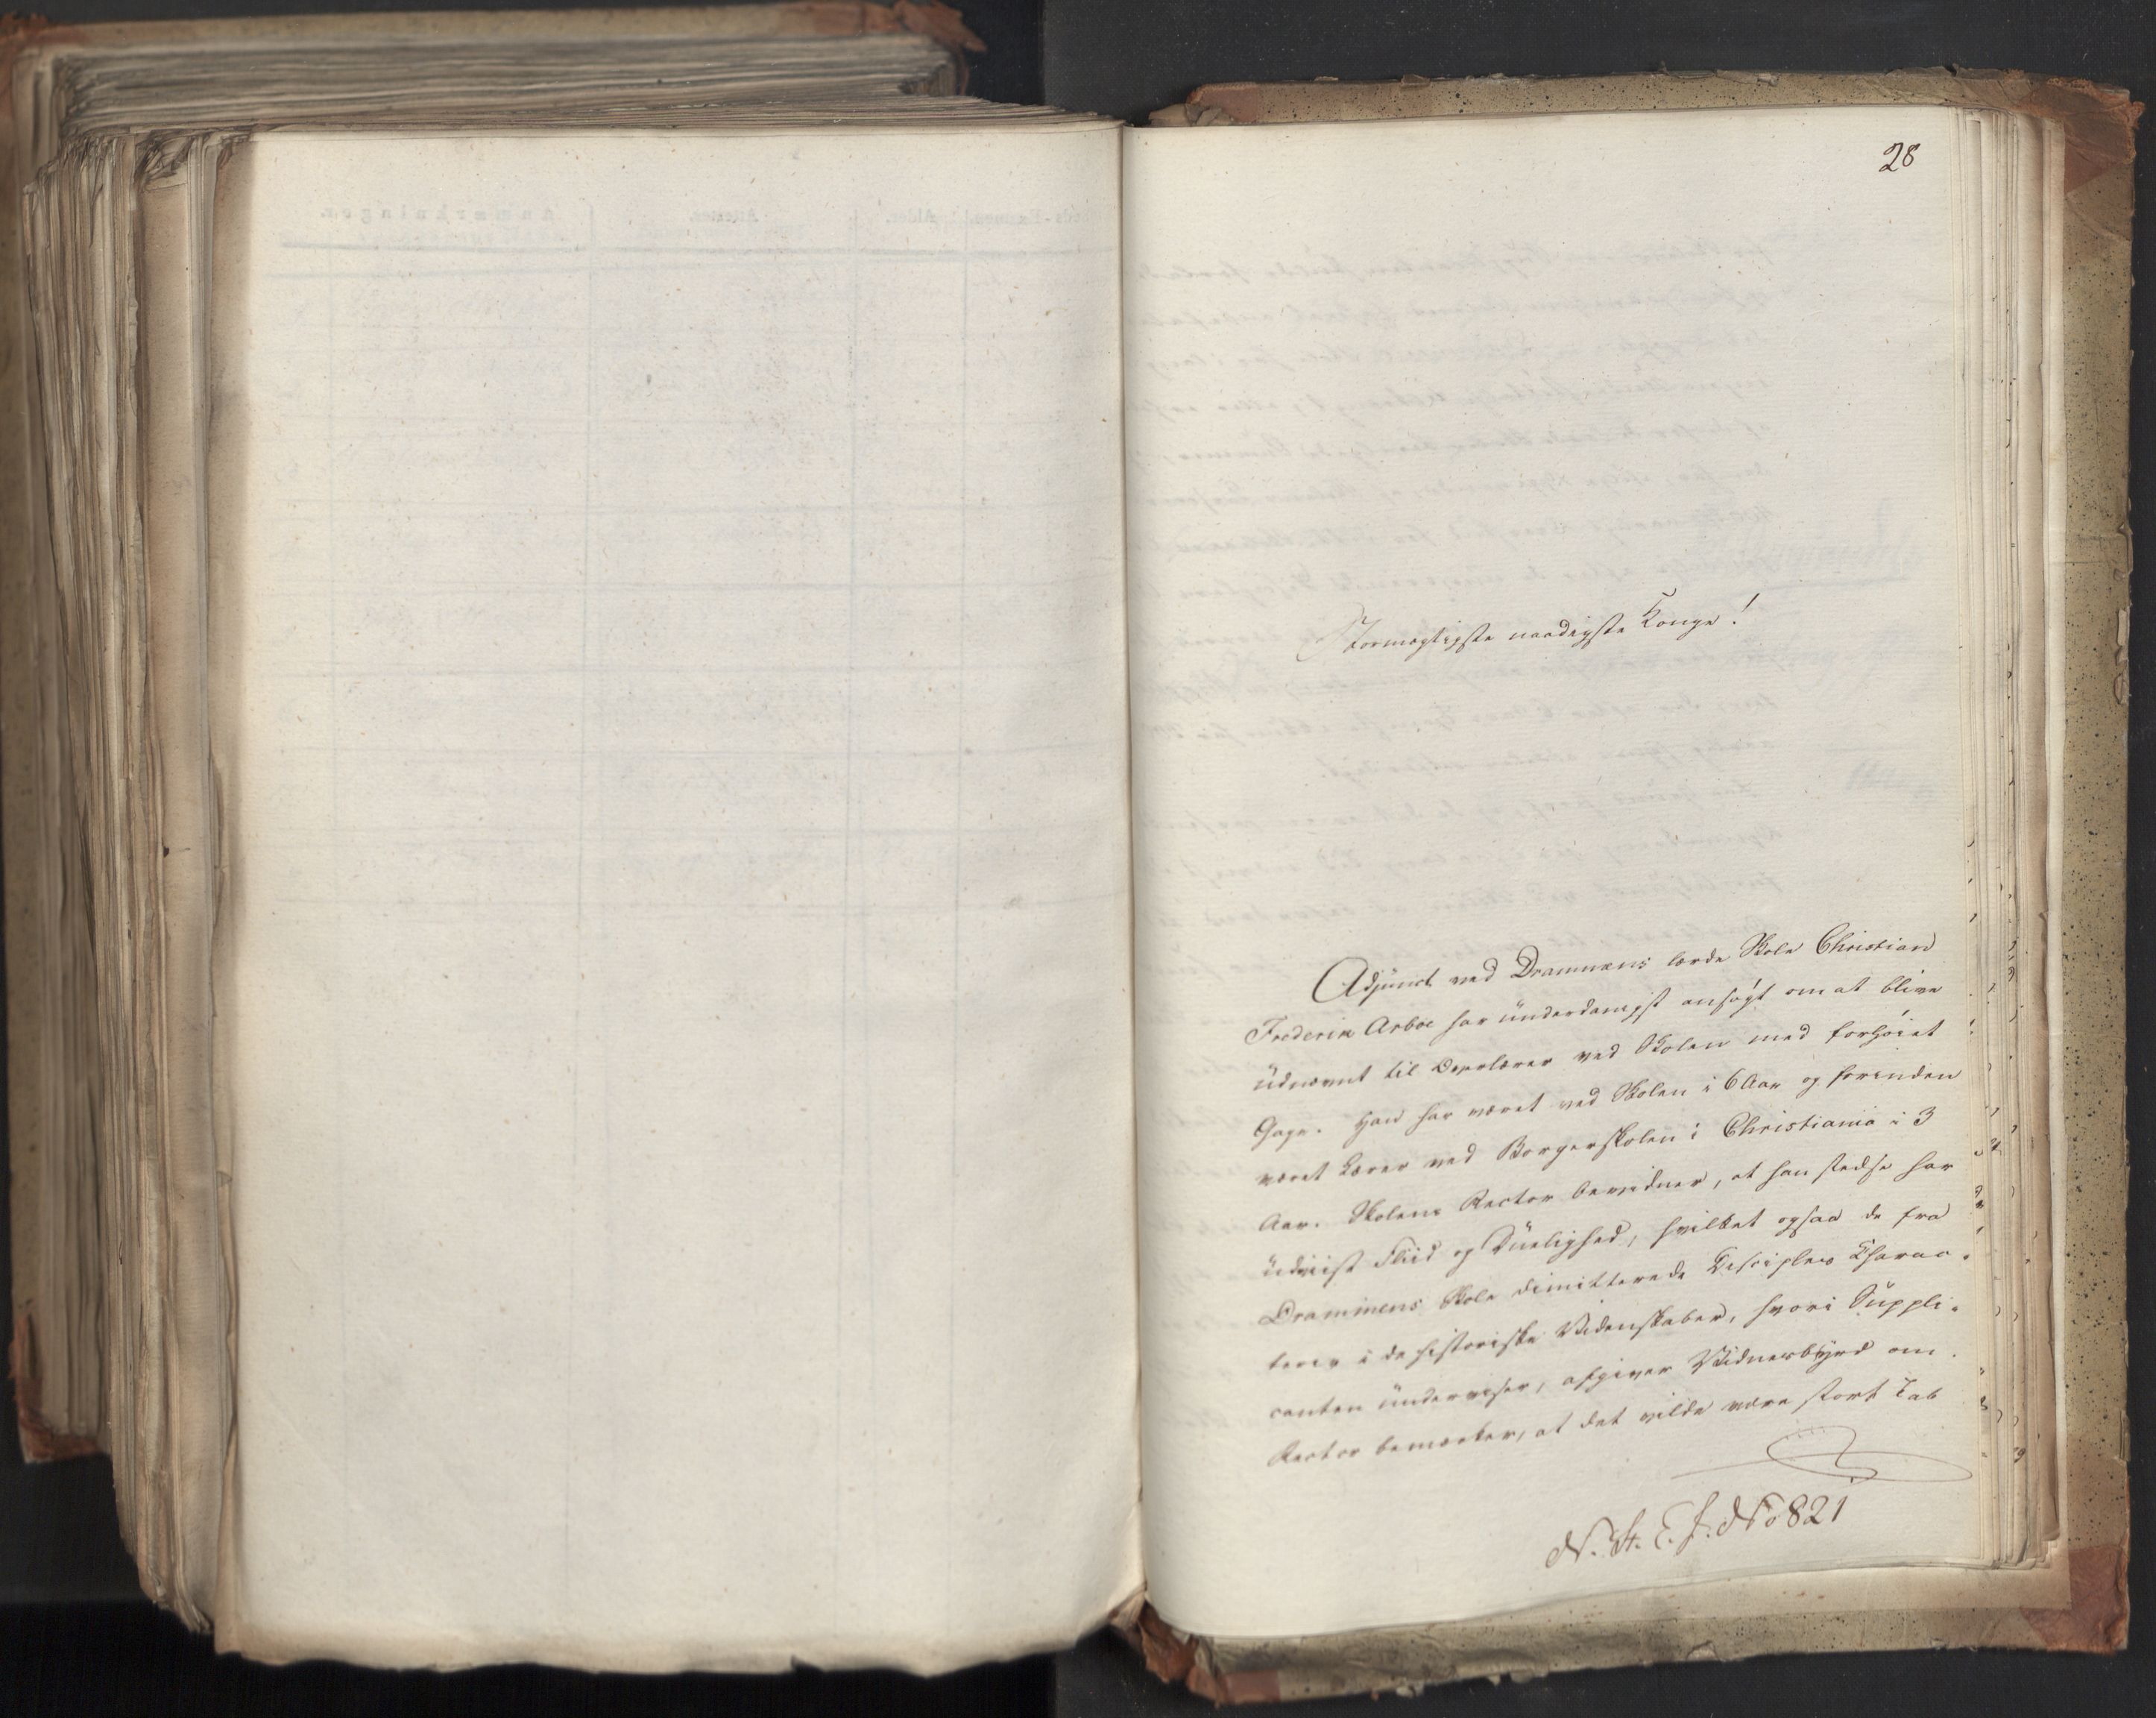 28
Stormægtigste naadigste Konge!
Adjunct ved Drammens lærde Skole Christian
Frederik Arboe har underdanigst ansøgt om at blive
udnævnt til Overlærer ved Skolen med forhøiet
Gage. Han har været ved Skolen i 6 Aar og forinden
været Lærer ved Borgerskolen i Christiania i 3
Aar. Skolens Rector bevidner, at han stedse har
udviist Fliid og Duelighed, hvilket ogsaa de fra
Drammens Skole dimitterede Disciples Charac-
terer i de historiske Videnskaber, hvori Suppli-
canten underviser, afgiver Vidnesbyrd om.
Rector bemærker, at det vilde være stort Tab
N. St. E. f. No 821